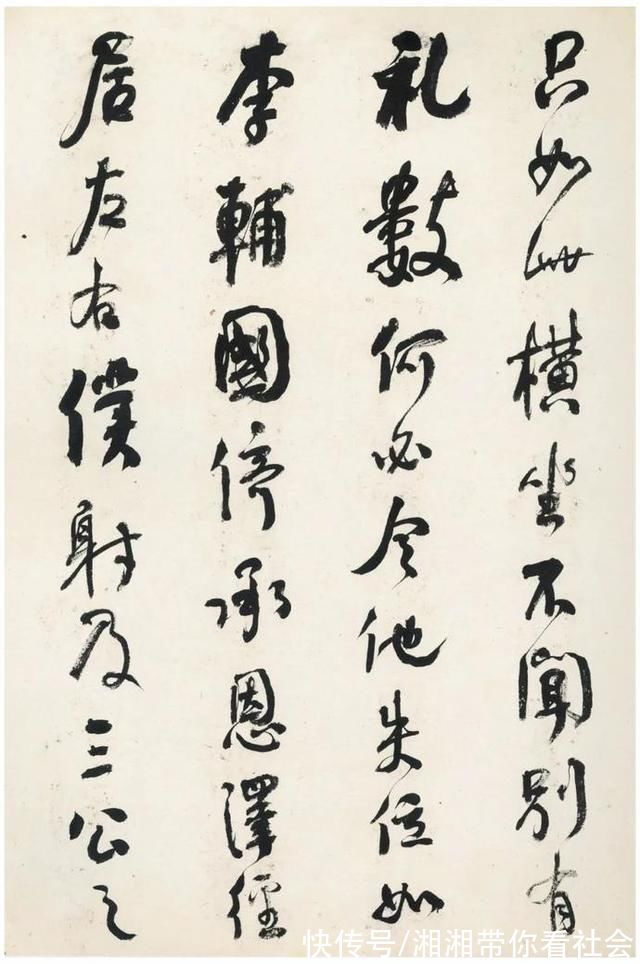 只如此橫坐不聞別有
礼數何必令他失位如
李輔國倚承恩澤徑
居左右僕射及三公之
快传号/湘湘带你看社会